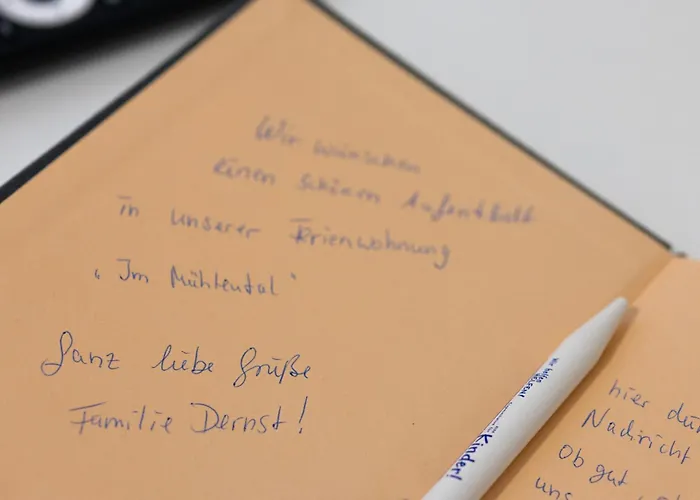 Wir wünschen
einen schönen Aufenthalt
in unserer Ferienwohnung
„Im Mühlental"
Ganz liebe Grüße
Familie Dernst!
Wir helfen
Kinder!
hier
Nachricht
ob gut
uns